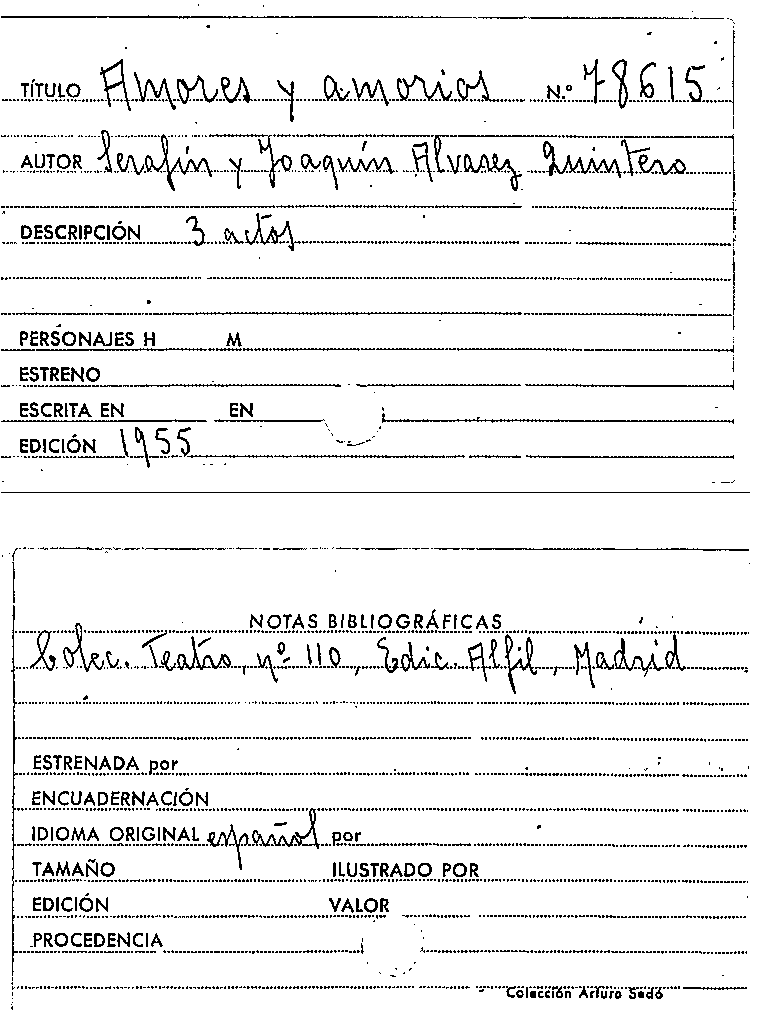 TÍTULO Amores y amorios N.º 78615
AUTOR Serafín y Joaquín Alvarez Quintero
DESCRIPCIÓN 3 actos
PERSONAJES H M
ESTRENO
ESCRITA EN EN
EDICIÓN 1955
NOTAS BIBLIOGRÁFICAS
Colec. Teatro, nº 110, Edic. Alfil, Madrid
ESTRENADA por
ENCUADERNACIÓN
IDIOMA ORIGINAL español por
TAMAÑO ILUSTRADO POR
EDICIÓN VALOR
PROCEDENCIA
Colección Arturo Sedó